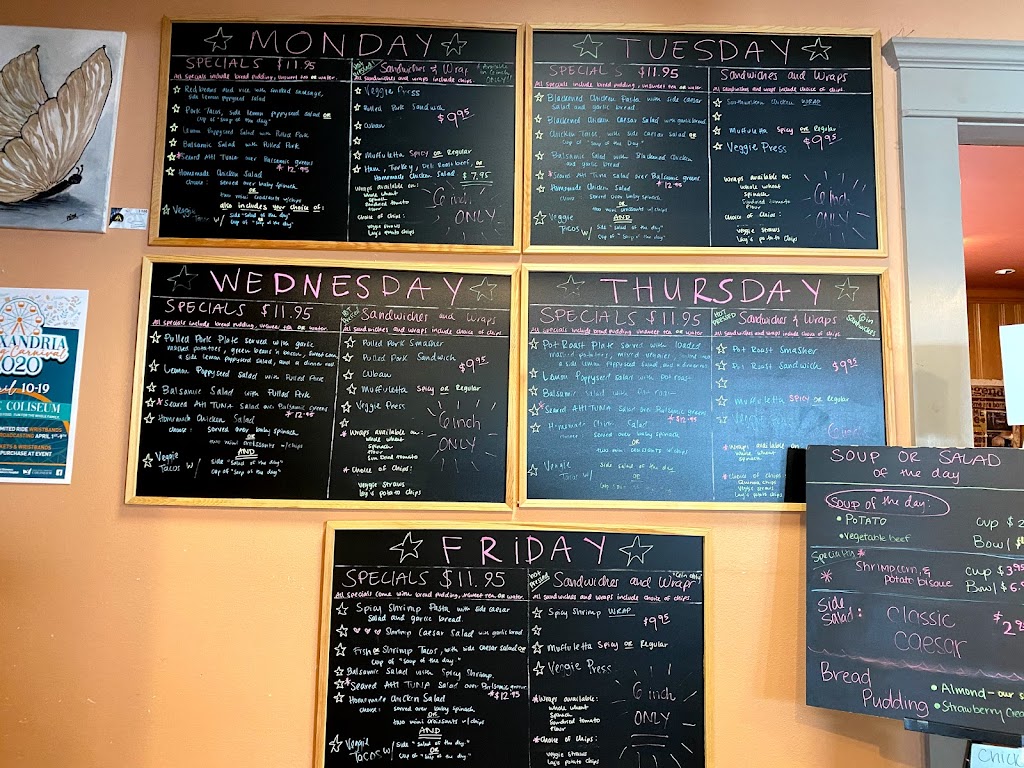 MONDAY
SPECIALS $11.95
All specials include bread pudding, unsweet tea or water.
Red beans and rice with smoked sausage,
side lemon poppyseed salad
Pork Tacos, side lemon poppyseed salad OR
cup of "soup of the day"
Lemon Poppyseed Salad with Pulled Pork
Balsamic Salad with Pulled Pork
*Seared AHI Tuna over Balsamic greens
* 12.95
Homemade Chicken Salad
choose: served over baby spinach
OR
two mini croissants w/chips
also includes your choice of:
Veggie
Tacos w/ side "Salad of the day"
cup of "soup of the day"
Sandwiches & Wrap
All sandwiches and wraps include chips.
Veggie Press
Pulled Pork Sandwich
$9.95
Cuban
Muffuletta Spicy or Regular
Ham, Turkey, Deli Roast beef, or
Homemade Chicken Salad $7.95
Wraps available on:
whole wheat
spinach
sundried tomato
Choice of Chips:
veggie straws
lay's potato chips
6 inch
ONLY
TUESDAY
SPECIAL'S $11.95
All specials include bread pudding, unsweet tea or water
Blackened Chicken Pasta with side caesar
salad and garlic bread
Blackened Chicken Caesar Salad w/garlic bread
Chicken Tacos with side Caesar salad OR
cup of "Soup of the Day"
Balsamic Salad with Blackened Chicken
and garlic bread
*Seared AHI Tuna salad over Balsamic greens
* 12.95
Homemade Chicken Salad
choose: served over baby spinach
OR
two mini croissants w/chips
AND
Veggie
Tacos w/ side "Salad of the day"
Cup of "Soup of the day"
Sandwiches and Wraps
All sandwiches and wraps include choice of chips.
Southwestern Chicken WRAP
Muffuletta Spicy or Regular
$9.95
Veggie Press
Wraps available on:
whole wheat
spinach
sundried tomato
Choice of Chips:
veggie straws
Lay's potato chips
6 inch
ONLY
WEDNESDAY
SPECIALS $11.95
All specials include bread pudding, unsweet tea or water
Pulled Pork Plate served with garlic
mashed potatoes, green beans n bacon, sweet corn
a side Lemon Poppyseed Salad, and a dinner roll
Lemon Poppyseed Salad with Pulled Pork
Balsamic Salad with Pulled Pork
*Seared AHI TUNA Salad over Balsamic greens
* 12.95
Homemade Chicken Salad
choose: served over baby spinach
OR
two mini croissants w/chips
AND
Veggie
Tacos w/ side "Salad of the day"
cup of "soup of the day"
Hot Pressed Sandwiches and Wraps
All sandwiches and wraps include choice of chips.
Pulled Pork Smasher
Pulled Pork Sandwich
$9.95
Cuban
Muffuletta Spicy or Regular
Veggie Press
*Wraps available on:
whole wheat
spinach
sun dried tomato
*Choice of Chips:
Veggie Straws
lay's potato chips
6 inch
ONLY
THURSDAY
SPECIALS $11.95
All specials include bread pudding, unsweet tea or water
Pot Roast Plate served with loaded
mashed potatoes, mixed veggies,
a side Lemon Poppyseed Salad and a dinner roll
Lemon Poppyseed salad with Pot roast
Balsamic Salad with
*Seared AHI TUNA Salad over Balsamic greens
* $12.95
Homemade Chicken Salad
choose: served over baby spinach
OR
two mini croissants w/chips
Veggie
Tacos w/ side salad of the day
OR
HOT PRESSED Sandwiches & Wraps
All sandwiches and wraps include choice of chips.
Pot Roast Smasher
Pot Roast Sandwich $9.95
Muffuletta SPICY or Regular
6 inch
*Wraps available on:
whole wheat
spinach
*Choice of Chips:
Veggie Straws
Lay's potato chips
FRIDAY
SPECIALS $11.95
All specials come with bread pudding, unsweet tea or water
Spicy Shrimp Pasta with side caesar
salad and garlic bread.
Shrimp Caesar Salad with garlic bread
Fish or Shrimp Tacos, with side caesar salad OR
cup of "soup of the day"
Balsamic Salad with Spicy Shrimp.
*Seared AHI TUNA Salad over Balsamic greens
* $12.95
Homemade Chicken Salad
choose: served over baby spinach
OR
two mini croissants w/chips
AND
Veggie
Tacos w/ side "Salad of the day"
OR
cup of "soup of the day"
hot pressed Sandwiches and Wraps "6 in only"
All sandwiches and wraps include choice of chips.
Spicy Shrimp WRAP
$9.95
Muffuletta Spicy or Regular
Veggie Press
*Wraps available:
whole wheat
Spinach
Sundried tomato
*Choice of Chips:
veggie straws
lays potato chips
6 inch
ONLY
SOUP OR SALAD
of the day
Soup of the day:
• POTATO
• vegetable beef
cup $2
Bowl $
Specialty*
* Shrimp, corn, &
potato bisque
cup $3.95
Bowl $6.
Side
Salad:
Classic
Caesar
$2.9
Bread
Pudding
• Almond - our s
• Strawberry Crea
Chick
EXANDRIA
2020
ril 10-19
COLISEUM
MITED RIDE WRISTBANDS
KETS & WRISTBANDS
PURCHASE AT EVENT